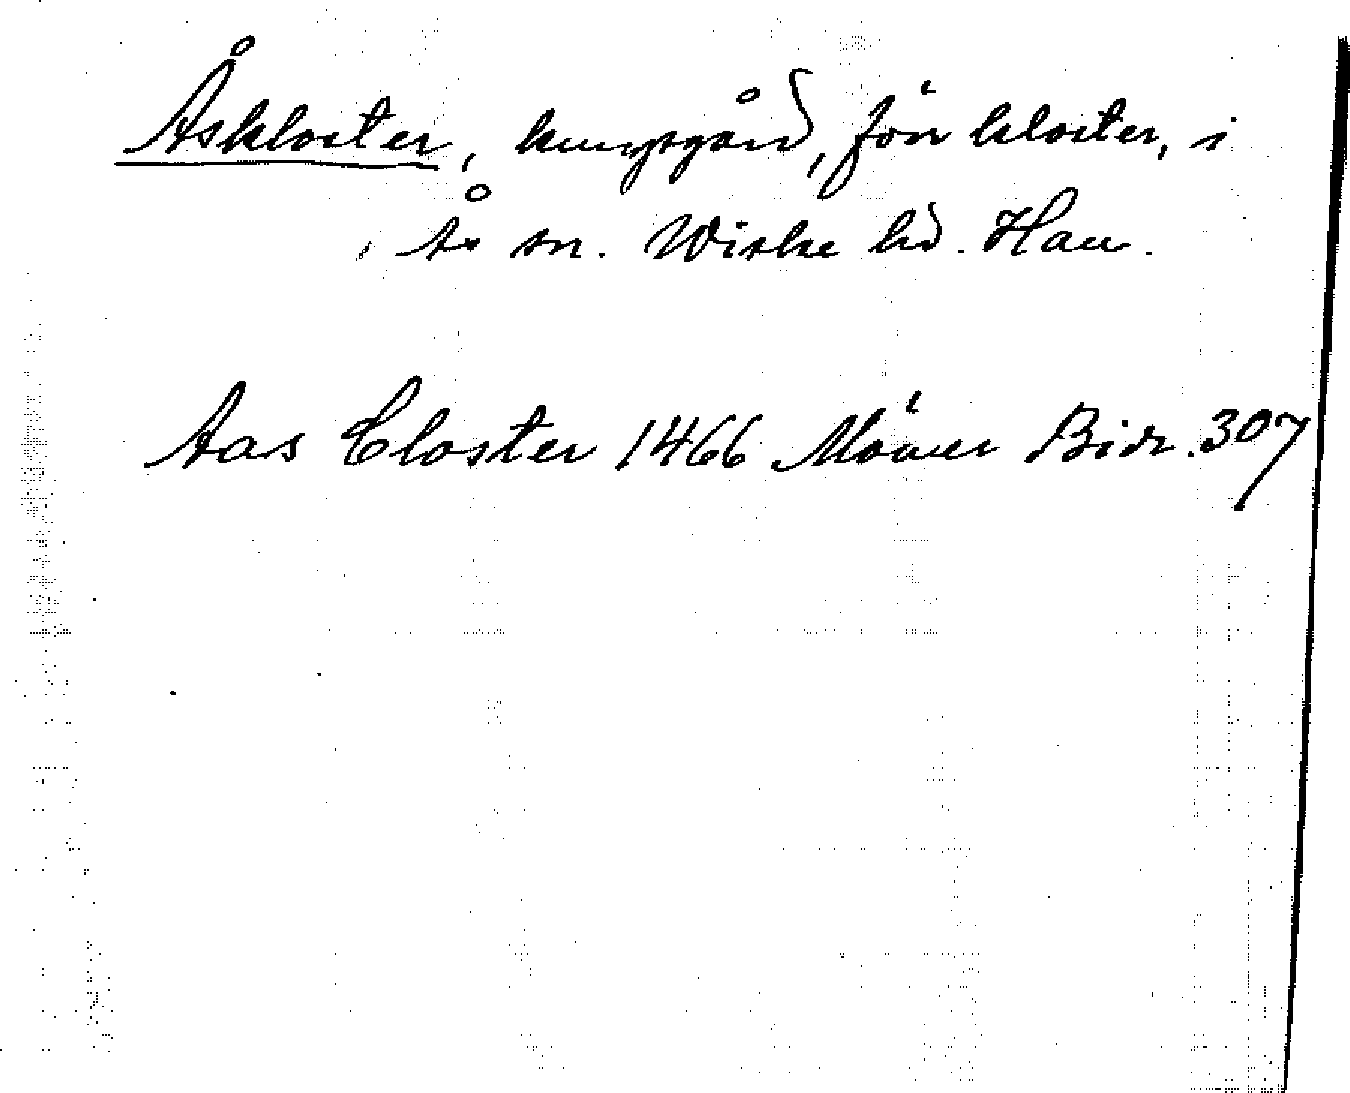 Åskloster, kungsgård, förr kloster, i
Ås sn. Wiske hd. Hall.
Aas Closter 1466 Möller Bidr. 307